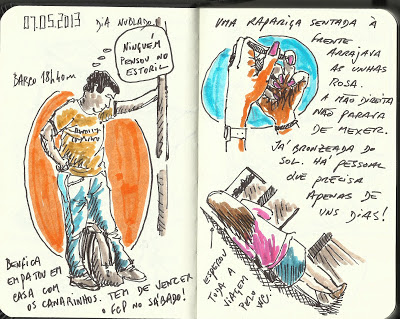 07.05.2013
DIA NUBLADO
NINGUÉM
PENSOU NO
ESTORIL
BARCO 18h40m
BENFICA
EMPATOU EM
CASA COM
OS CANARINHOS. TEM DE VENCER
O FCP NO SÁBADO!
UMA RAPARIGA SENTADA À
FRENTE
ARRAJAVA
AS UNHAS
ROSA.
A MÃO DIREITA
NÃO PARAVA
DE MEXER.
JÁ BRONZEADA DO
SOL. HÁ PESSOAL
QUE PRECISA
APENAS DE
UNS DIAS!
ESPEROU
TODA A
VIAGEM
PELO